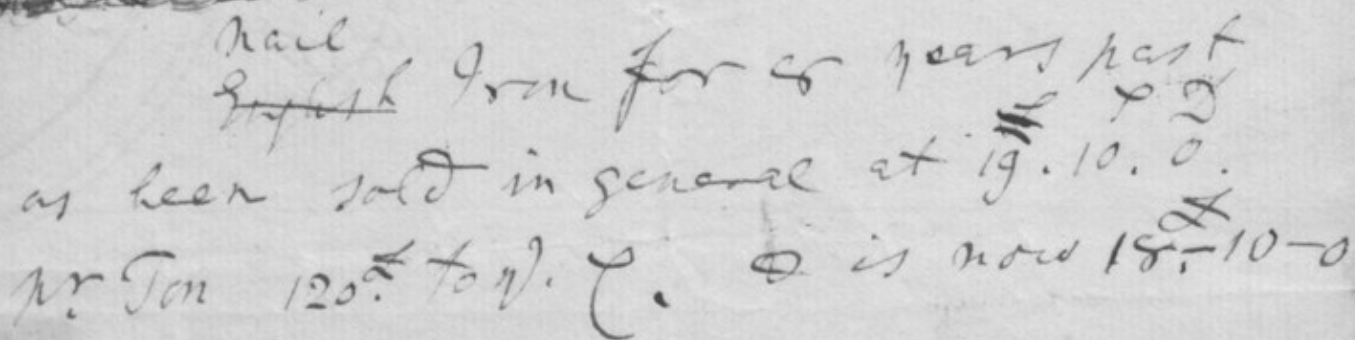 nail
English Iron for 8 years past
as been sold in general at 19. 10. 0.
pr. Ton 120 to C. & is now 18.-10-0